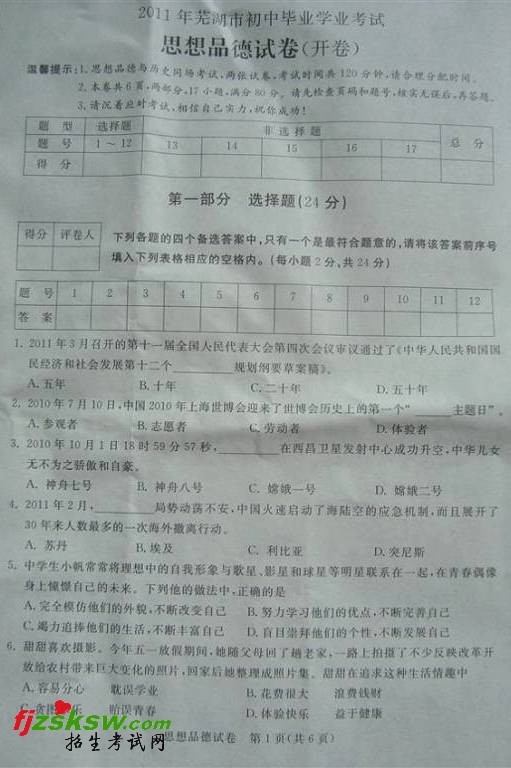 2011年芜湖市初中毕业学业考试
思想品德试卷(开卷)
温馨提示:1.思想品德与历史同场考试,两张试卷,考试时间共120分钟,请合理分配时间。
2.本卷共6页,两部分,17小题,满分80分。请先检查页码和题号,核实无误后,再答题。
3.请沉着应对考试,相信自己实力,祝你成功!
题 型 选择题 非选择题 总 分
题 号 1～12 13 14 15 16 17
得 分
第一部分 选择题(24分)
得分 评卷人
下列各题的四个备选答案中,只有一个是最符合题意的,请将该答案前序号
填入下列表格相应的空格内。(每小题2分,共24分)
题 号 1 2 3 4 5 6 7 8 9 10 11 12
答 案
1. 2011年3月召开的第十一届全国人民代表大会第四次会议审议通过了《中华人民共和国国
民经济和社会发展第十二个________规划纲要草案稿》。
A.五年 B.十年 C.二十年 D.五十年
2. 2010年7月10日,中国2010年上海世博会迎来了世博会历史上的第一个“_____主题日”。
A.参观者 B.志愿者 C.劳动者 D.体验者
3. 2010年10月1日18时59分57秒,________在西昌卫星发射中心成功升空,中华儿女
无不为之骄傲和自豪。
A. 神舟七号 B. 神舟八号 C. 嫦娥一号 D. 嫦娥二号
4. 2011年2月,________局势动荡不安,中国火速启动了海陆空的应急机制,而且展开了
30年来人数最多的一次海外撤离行动。
A. 苏丹 B.埃及 C. 利比亚 D.突尼斯
5. 中学生小帆常常将理想中的自我形象与歌星、影星和球星等明星联系在一起,在青春偶像
身上憧憬自己的未来。下列他的做法中,正确的是
A.完全模仿他们的外貌,不断改变自己 B.努力学习他们的优点,不断完善自己
C.竭力追捧他们的生活,不断丰富自己 D.盲目崇拜他们的个性,不断发展自己
6. 甜甜喜欢摄影。今年五一放假期间,她随父母回了趟老家,一路上拍摄了不少反映改革开
放给农村带来巨大变化的照片,回家后她整理成照片集。甜甜在追求这种生活情趣中
A.容易分心 耽误学业 B.花费很大 浪费钱财
C.贪图享乐 贻误青春 D.体验快乐 益于健康
fjzsksw.com
招生考试网
思想品德试卷 第1页(共6页)